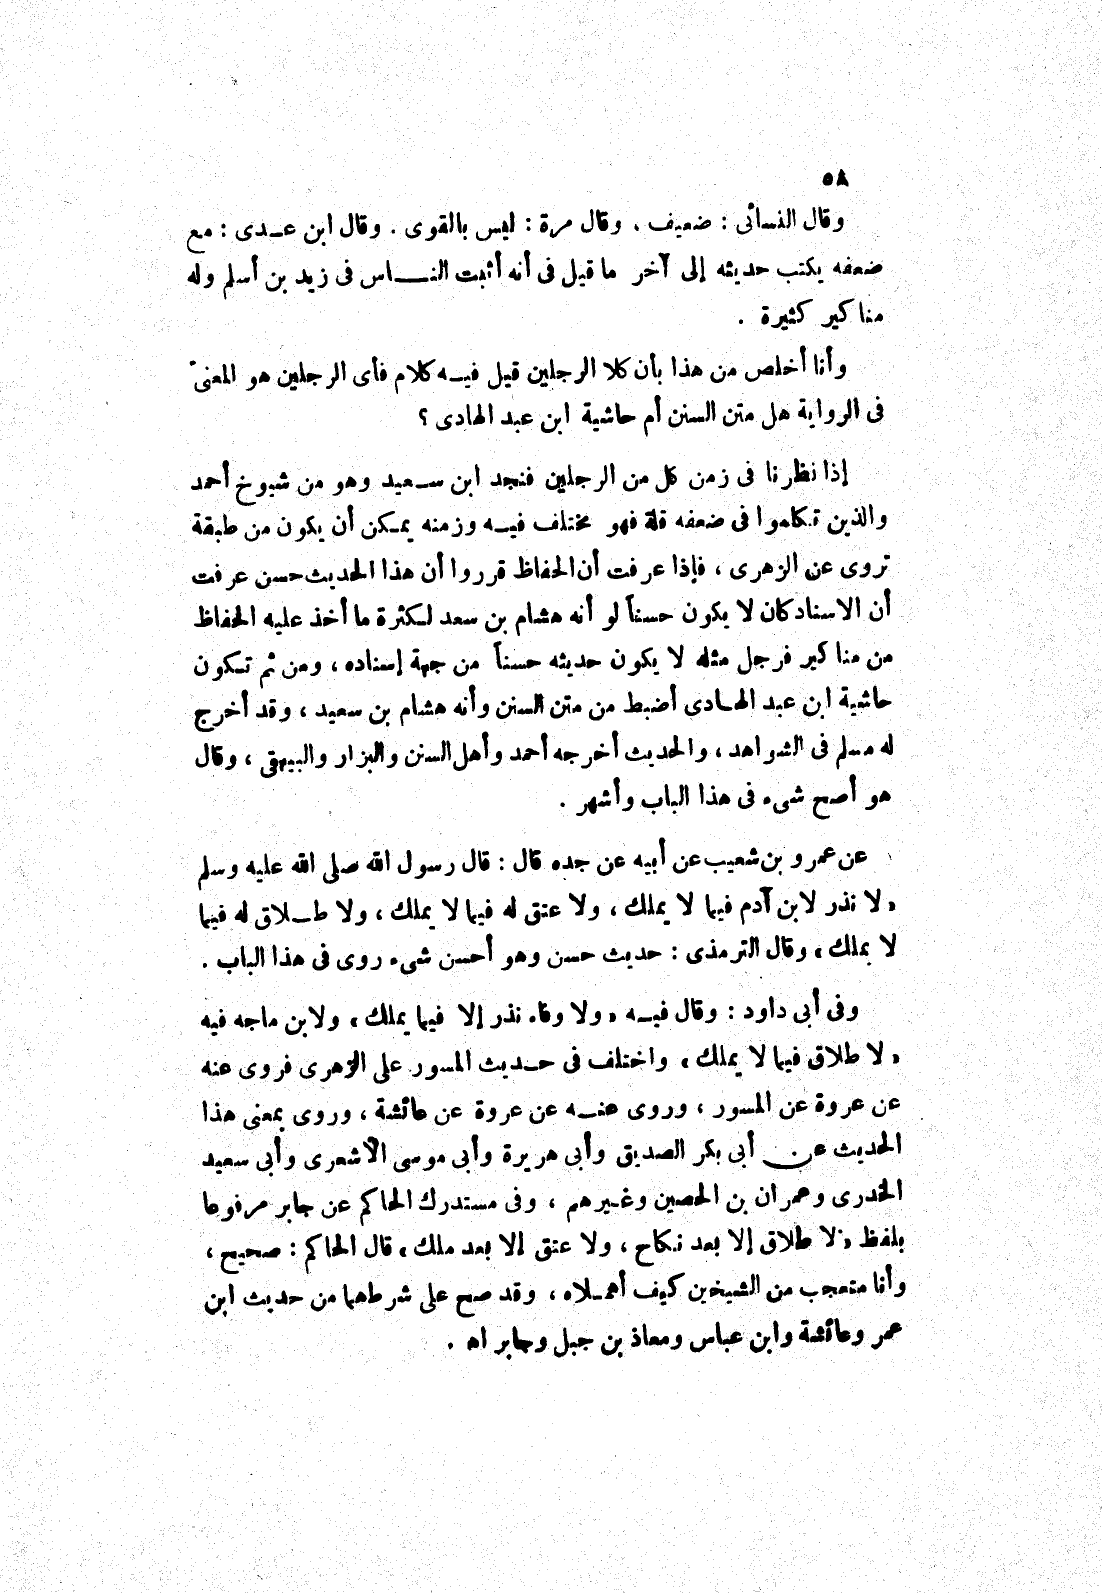 ٥٨
وقال النسائى : ضعيف . وقال مرة : ليس بالقوى . وقال ابن عدى : مع
ضعفه يكتب حديثه إلى آخر ما قيل فى أنه أثبت الناس فى زيد بن أسلم وله
مناكير كثيرة .
وأنا أخلص من هذا بأن كلا الرجلين قيل فيه كلام فأى الرجلين هو المعنىّ
فى الرواية هل متن السنن أم حاشية ابن عبد الهادى ؟
إذا نظرنا فى زمن كل من الرجلين فنجد ابن سعيد وهو من شيوخ أحمد
والذين تكلموا فى ضعفه قلة فهو مختلف فيه وزمنه يمكن أن يكون من طبقة
تروى عن الزهرى ، فإذا عرفت أن الحفاظ قرروا أن هذا الحديث حسن عرفت
أن الاسناد كان لا يكون حسناً لو أنه هشام بن سعد لكثرة ما أخذ عليه الحفاظ
من مناكير فرجل مثله لا يكون حديثه حسناً من جهة إسناده ، ومن ثم تكون
حاشية ابن عبد الهادى أضبط من متن السنن وأنه هشام بن سعيد ، وقد أخرج
له مسلم فى الشواهد ، والحديث أخرجه أحمد وأهل السنن والبزار والبيهقى ، وقال
هو أصح شىء فى هذا الباب وأشهر .
عن عمرو بن شعيب عن أبيه عن جده قال : قال رسول الله صلى الله عليه وسلم
« لا نذر لابن آدم فيما لا يملك ، ولا عتق له فيما لا يملك ، ولا طلاق له فيما
لا يملك » وقال الترمذى : حديث حسن وهو أحسن شىء روى فى هذا الباب .
وفى أبى داود : وقال فيه « ولا وفاء نذر إلا فيما يملك » ولابن ماجه فيه
« لا طلاق فيما لا يملك » واختلف فى حديث المسور على الزهرى فروى عنه
عن عروة عن المسور ، وروى عنه عن عروة عن عائشة ، وروى بمعنى هذا
الحديث عن أبى بكر الصديق وأبى هريرة وأبى موسى الأشعرى وأبى سعيد
الخدرى وعمران بن الحصين وغيرهم ، وفى مستدرك الحاكم عن جابر مرفوعا
بلفظ « لا طلاق إلا بعد نكاح ، ولا عتق إلا بعد ملك » قال الحاكم : صحيح ،
وأنا متعجب من الشيخين كيف أهملاه ، وقد صح على شرطهما من حديث ابن
عمر وعائشة وابن عباس ومعاذ بن جبل وجابر اه .